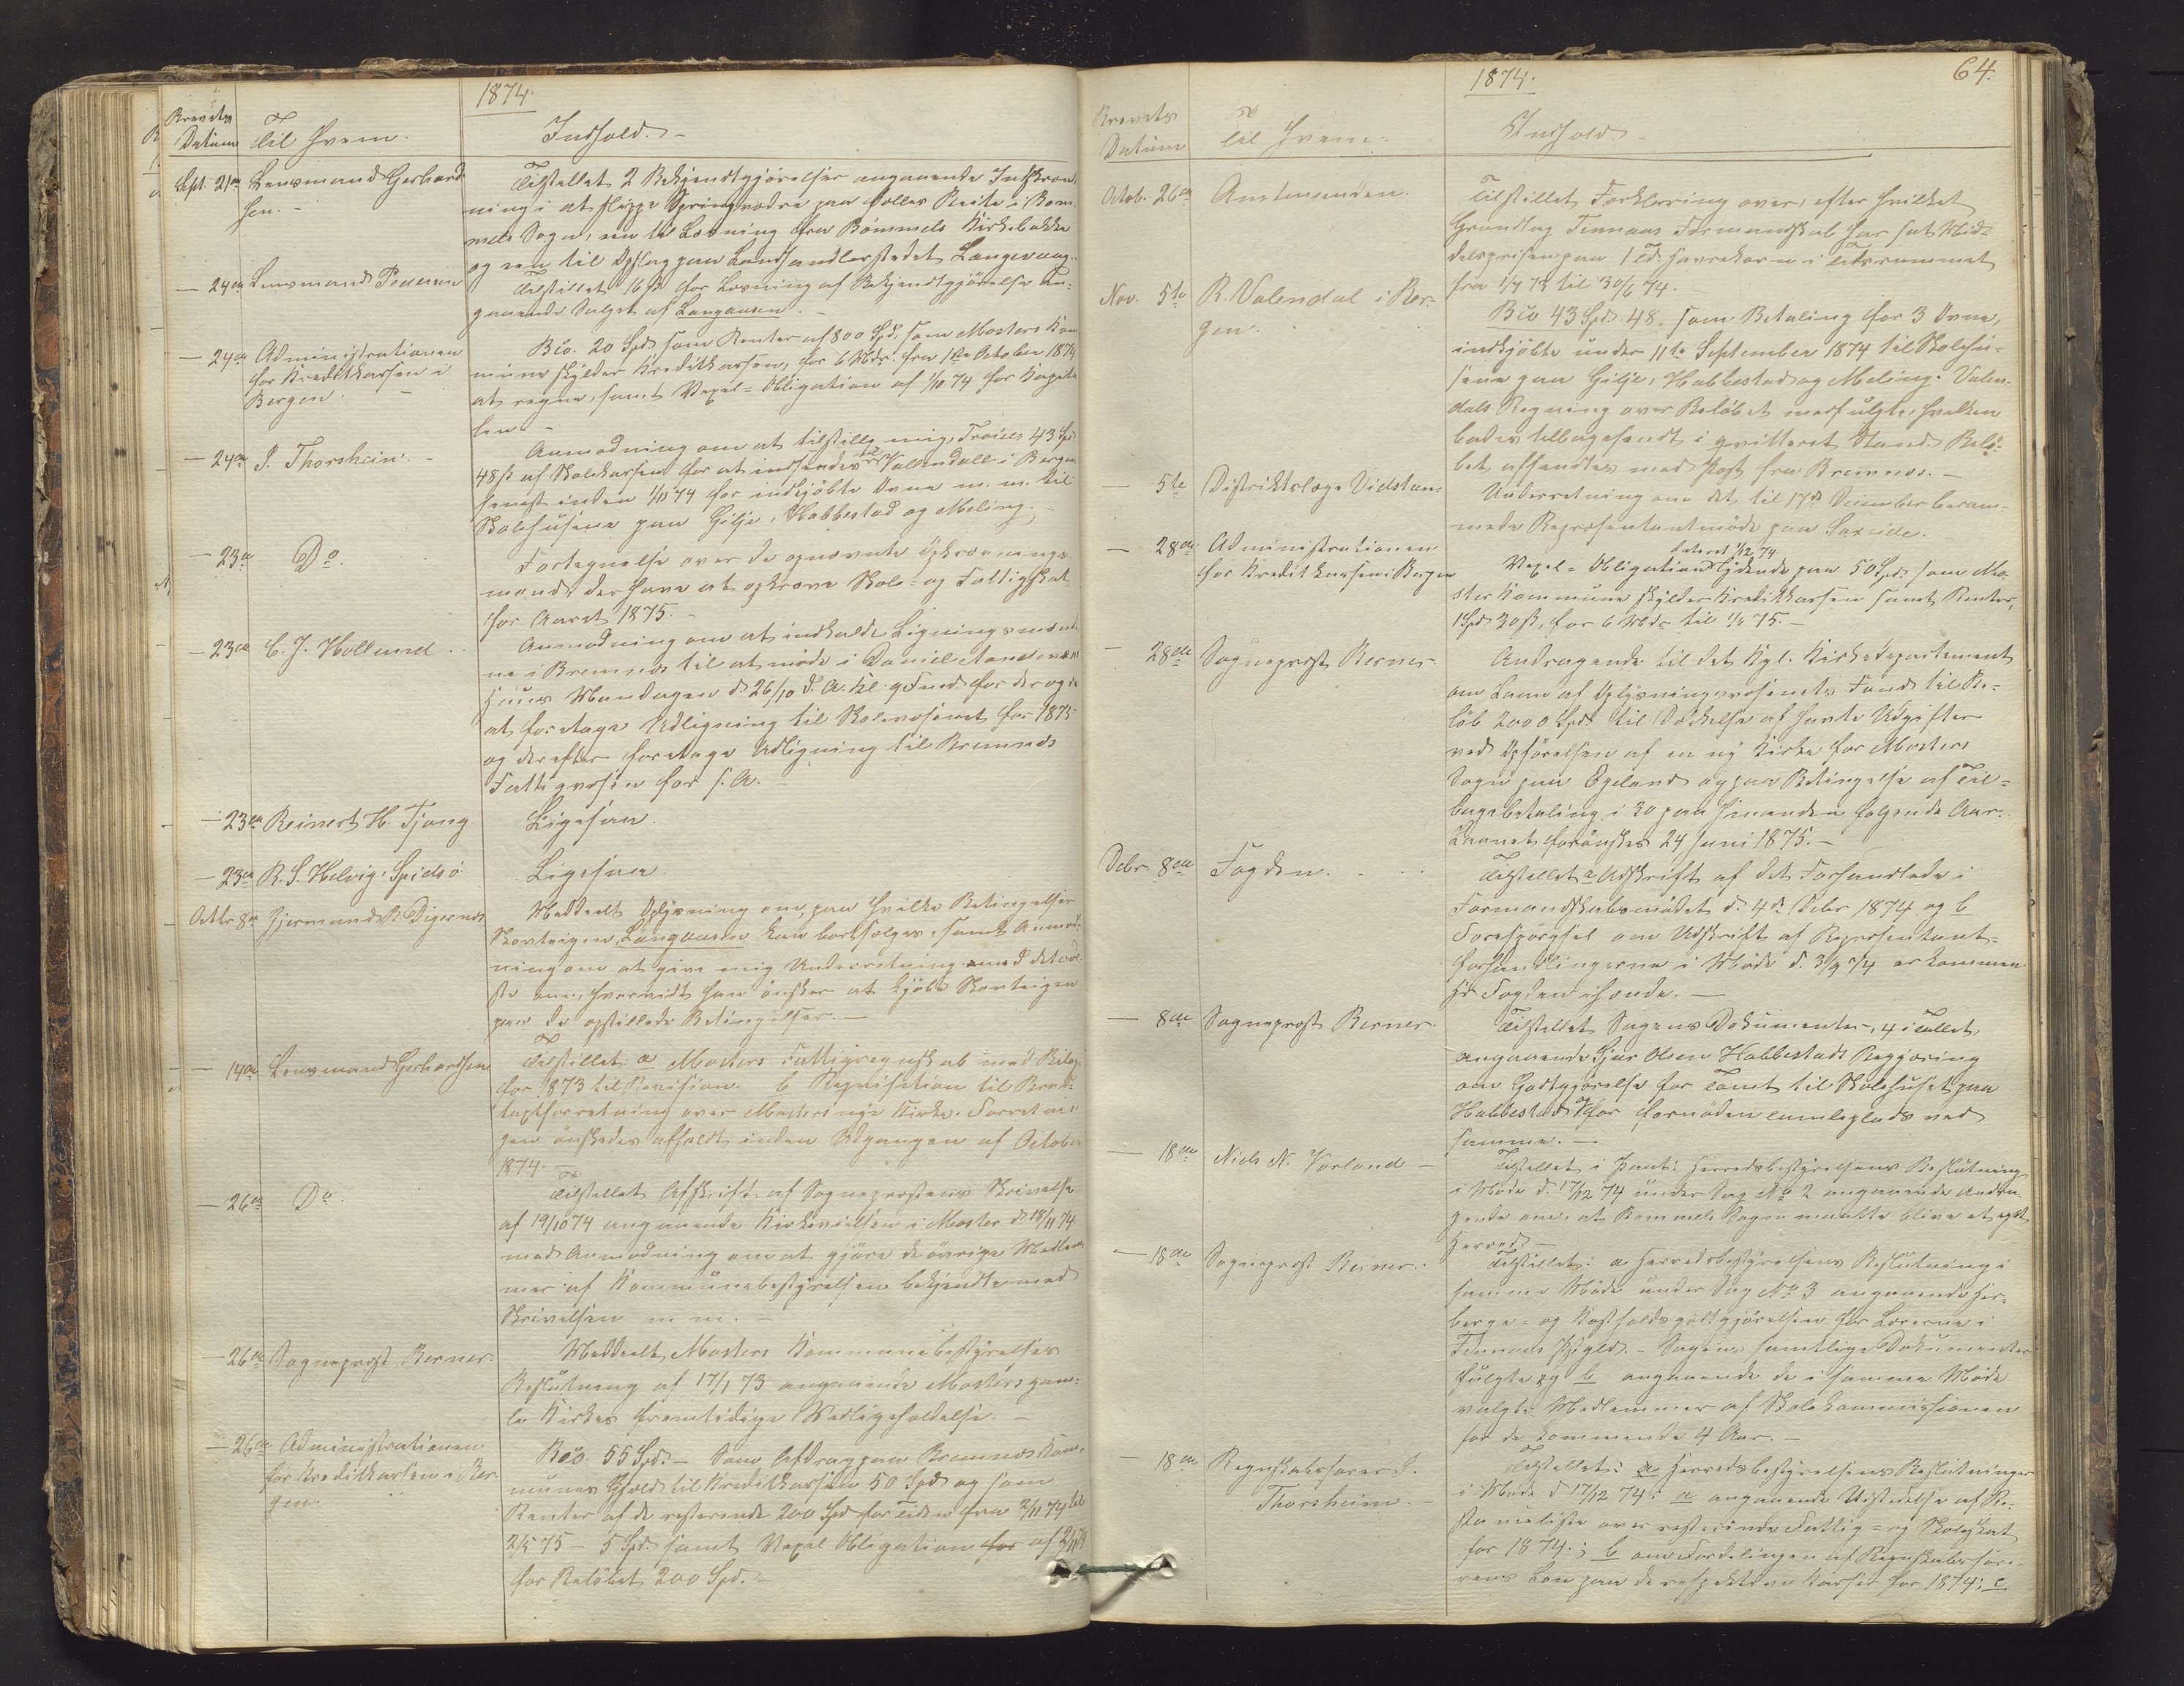 1874.
Brevets
Datum
Til Hvem.
Indhold. -
Sept. 21de
Lensmand Gerhard
sen. -
Tilstillet 2 Bekjendtgjørelser angaaende Indskrænk
ning i at slippe Springvædre paa fælles Beite i Bøm
mels Sogn, een til Læsning fra Bømmels Kirkebakke
og een til Opslag paa Landhandlerstedet Langevaag.
— 24de
Lensmand Pedersen
Tilstillet 16 ß for Læsning af Bekjendtgjørelse an-
gaaende Salget af Langaasen. -
— 24de
Administrationen
for Kreditkassen i
Bergen. -
Bco. 20 Spd. som Renter af 800 Spd, som Mosters Kom
mune skylder Kreditkassen, for 6 Mdr. fra 1ste October 1874
at regne, samt Vexel-Obligation af 1/10 74 for Kapita
len. -
— 24de
J. Thorsheim. -
Anmodning om at tilstille mig, Troiels 43 Spd
48 ß af Skolekassen for at indsendes til Valendall i Bergen
senest inden 1/11 74 for indkjøbte Ovne m. m. til
Skolehusene paa Gilje, Habbestad og Meling. -
— 23de
Do.
Fortegnelse over de opnævnte Opkrævnings-
mænd, der have at opkræve Skole- og Fattigskat
for Aaret 1875. -
— 23de
C. J. Hollund. .
Anmodning om at indkalde Ligningsmænde
ne i Bremnes til at møde i Daniel Aandersens
Huus Mandagen d. 26/10 d. A. Kl. 9 Fmd for der ogsa
at foretage Udligning til Skolevæsenet for 1875
og derefter foretage Udligning til Bremnes
Fattigvæsen for s. A. -
— 23de
Reinert H. Tjong
Ligesaa.
— 23de
R. S. Helvig. Spidsø
Ligesaa.
Octbr 8de
Hjermand R. Digernes
Meddeelt Oplysning om, paa hvilke Betingelser
Skovteigen Langaasen kan bortsælges, samt Anmod-
ning om at give mig Underretning med det før-
ste om, hvorvidt han ønsker at kjøbe Skovteigen
paa de opstillede Betingelser. —
— 14de
Lensmand Gerhardsen
Tilstillet: a Mosters Fattigregnskab med Bilage
for 1873 til Revision. b Reqvisition til Brand-
taxtforretning over Mosters nye Kirke. Forretnin-
gen ønskedes afholdt inden Udgangen af October
1874. —
— 26de
Do.
Tilstillet Afskrift af Sogneprestens Skrivelse
af 19/10 74 angaaende Kirkevielsen i Moster d. 18/11 74
med Anmodning om at gjøre de øvrige Medlem
mer af Kommunebestyrelsen bekjendte med
Skrivelsen m. m. -
— 26de
Sogneprest Berner.
Meddeelt Mosters Kommunebestyrelses
Beslutning af 17/1 73 angaaende Mosters gam-
le Kirkes fremtidige Vedligeholdelse. -
— 26de
Administrationen
for Kreditkassen i Ber-
gen.
Bco. 55 Spd. - Som Afdrag paa Bremnes Kom-
munes Gjeld til Kreditkassen 50 Spd og som
Renter af de resterende 200 Spd for Tiden fra 2/11 74 til
2/5 75 - 5 Spd. samt Vexel Obligation for af 2/11 74
for Beløbet 200 Spd. -
1874.
64.
Brevets
Datum
Til Hvem.
Indhold -
Octob. 26de
Amtmanden.
Tilstillet Forklaring over, efter hvilket
Grundlag Finnaas Formandskab har sat Mid-
delprisen paa 1 Td. Havrekorn i Tidsrummet
fra 1/7 73 til 30/6 74.
Nov. 5te
R. Valendal i Ber-
gen.
Bco 43 Spd. 48. som Betaling for 3 Ovne,
indkjøbte under 11te September 1874 til Skolehu-
sene paa Gilje, Habbestad og Meling. Valen-
dals Regning over Beløbet medfulgte, hvilken
bedes tilbagesendt i qvitteret Stand. Belø-
bet afsendtes med Post fra Bremnes. -
— 5te
Distriktslæge Vidsteen
Underretning om det til 17de December beram-
mede Repræsentantmøde paa Søreide. -
— 28de
Administrationen
for Kreditkassen i Bergen
Vexel-Obligation dateret 1/12 74 lydende paa 50 Spd. som Mo-
sters Kommune skylder Kreditkassen samt Renter,
1 Spd 30 ß, for 6 Mdr til 1/6 75. -
— 28de
Sogneprest Berner.
Andragende til det Kgl. Kirkedepartement
om Laan af Oplysningsvæsenets Fond til Be-
løb 2000 Spd. til Dækkelse af havte Udgifter
ved Opførelsen af en ny Kirke for Mosters
Sogn paa Egeland og paa Betingelse af Til-
bagebetaling i 30 paa hinanden følgende Aar.
Laanet forønskes 24 Juni 1875. -
Debr. 8de
Fogden. . .
Tilstillet a Udskrift af det Forhandlede i
Formandskabsmødet d. 4de Debr 1874 og b
Forespørgsel om Udskrift af Repræsentant-
forhandlingerne i Møde d. 3/9 74 er kommen
Hr. Fogden ihænde. —
— 8de
Sogneprest Berner.
Tilstillet Sagens Dokumenter, 4 i Tallet,
angaaende Sjur Olsen Habbestads Begjæring
om Godtgjørelse for Tomt til Skolehuset paa
Habbestad og for fornøden Tumleplads ved
samme. —
— 18de
Niels N. Vorland -
Tilstillet i Parti: Herredsbestyrelsens Beslutning
i Møde d. 17/12 74 under Sag No 2 angaaende Andra-
gende om, at Bømmels Sogn maatte blive et eget
Herred. -
— 18de
Sogneprest Berner.
Tilstillet: a Herredsbestyrelsens Beslutning i
samme Møde under Sag No 3 angaaende Her-
berge- og Kostholdsgodtgjørelsen for Lærerne i
Finnaas Prgld. - Sagens samtlige Dokumenter
fulgte og b angaaende de i samme Møde
valgte Medlemmer af Skolekommissionen
for de kommende 4 Aar. -
— 18de
Regnskabsfører J.
Thorsheim. -
Tilstillet: a Herredsbestyrelsens Beslutninger
i Møde d 17/12 74: a angaaende Udstedelse af Re-
stanceliste over resterende Fattig- og Skoleskat
for 1874.; b om Fordelingen af Regnskabsføre-
rens Løn paa de respektive Kasser for 1874; c